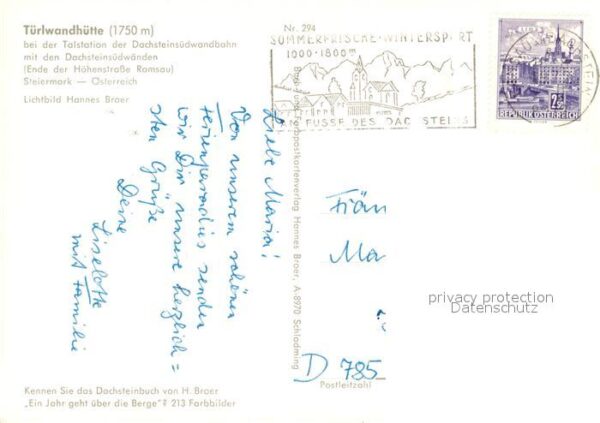 Türlwandhütte (1750 m)
bei der Talstation der Dachsteinsüdwandbahn
mit den Dachsteinsüdwänden
(Ende der Höhenstraße Ramsau)
Steiermark — Österreich
Lichtbild Hannes Broer
Nr. 294
SOMMERFRISCHE-WINTERSPORT
1000-1800 m
AM FUSSE DES DACHSTEINS
2.50
REPUBLIK ÖSTERREICH
Liebe Maria!
Von unserem schönen
Ferienparadies senden
wir Dir unsere herzlich=
sten Grüße
Deine
Liselotte
mit Familie
Farbpostkartenverlag Hannes Broer, A-8970 Schladming
Fräu
Ma
D 785
Postleitzahl
privacy protection
Datenschutz
Kennen Sie das Dachsteinbuch von H. Broer
„Ein Jahr geht über die Berge"? 213 Farbbilder